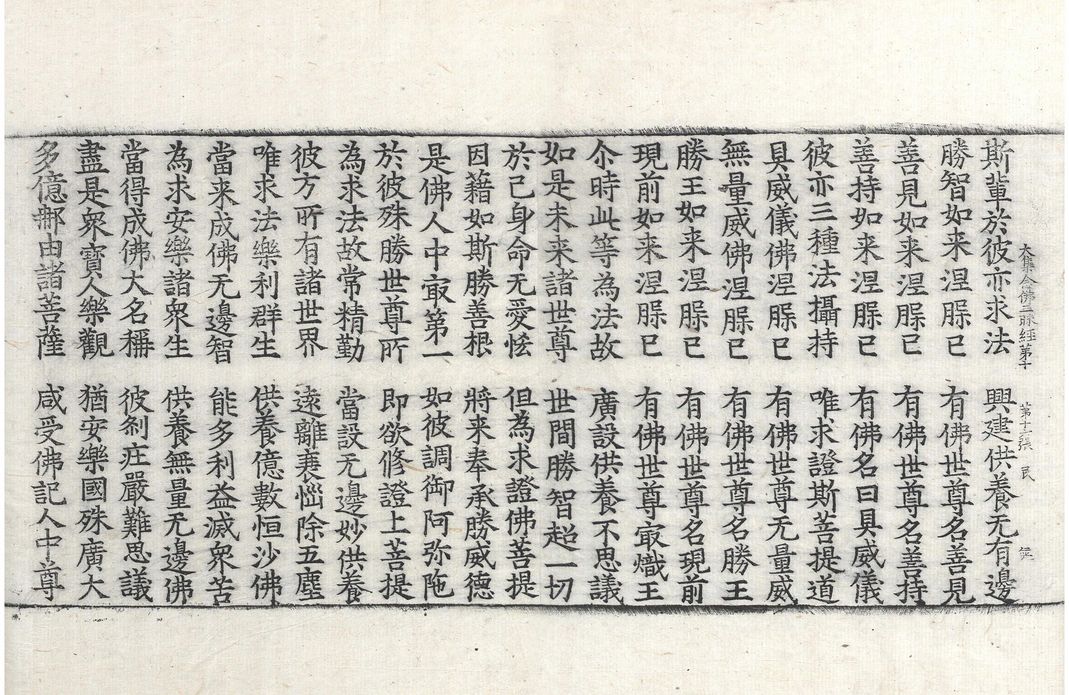 大集念佛三昧經第十　第十二張　民
斯輩於彼亦求法　興建供養无有邊
勝智如来涅槃已　有佛世尊名善見
善見如来涅槃已　有佛世尊名善持
善持如来涅槃已　有佛名曰具威儀
彼亦三種法攝持　唯求證斯菩提道
具威儀佛涅槃已　有佛世尊无量威
無量威佛涅槃已　有佛世尊名勝王
勝王如来涅槃已　有佛世尊名現前
現前如来涅槃已　有佛世尊㝡熾王
尒時此等為法故　廣設供養不思議
如是未来諸世尊　世間勝智超一切
於己身命无愛恡　但為求證佛菩提
因藉如斯勝善根　將来奉承勝威德
是佛人中㝡第一　如彼調御阿弥陁
於彼殊勝世尊所　即欲修證上菩提
為求法故常精勤　當設无邊妙供養
彼方所有諸世界　遠離衰惱除五塵
唯求法樂利群生　供養億數恒沙佛
當来成佛无邊智　能多利益滅衆苦
為求安樂諸衆生　供養無量无邊佛
當得成佛大名稱　彼刹庄嚴難思議
盡是衆寶人樂觀　猶安樂國殊廣大
多億那由諸菩薩　咸受佛記人中尊